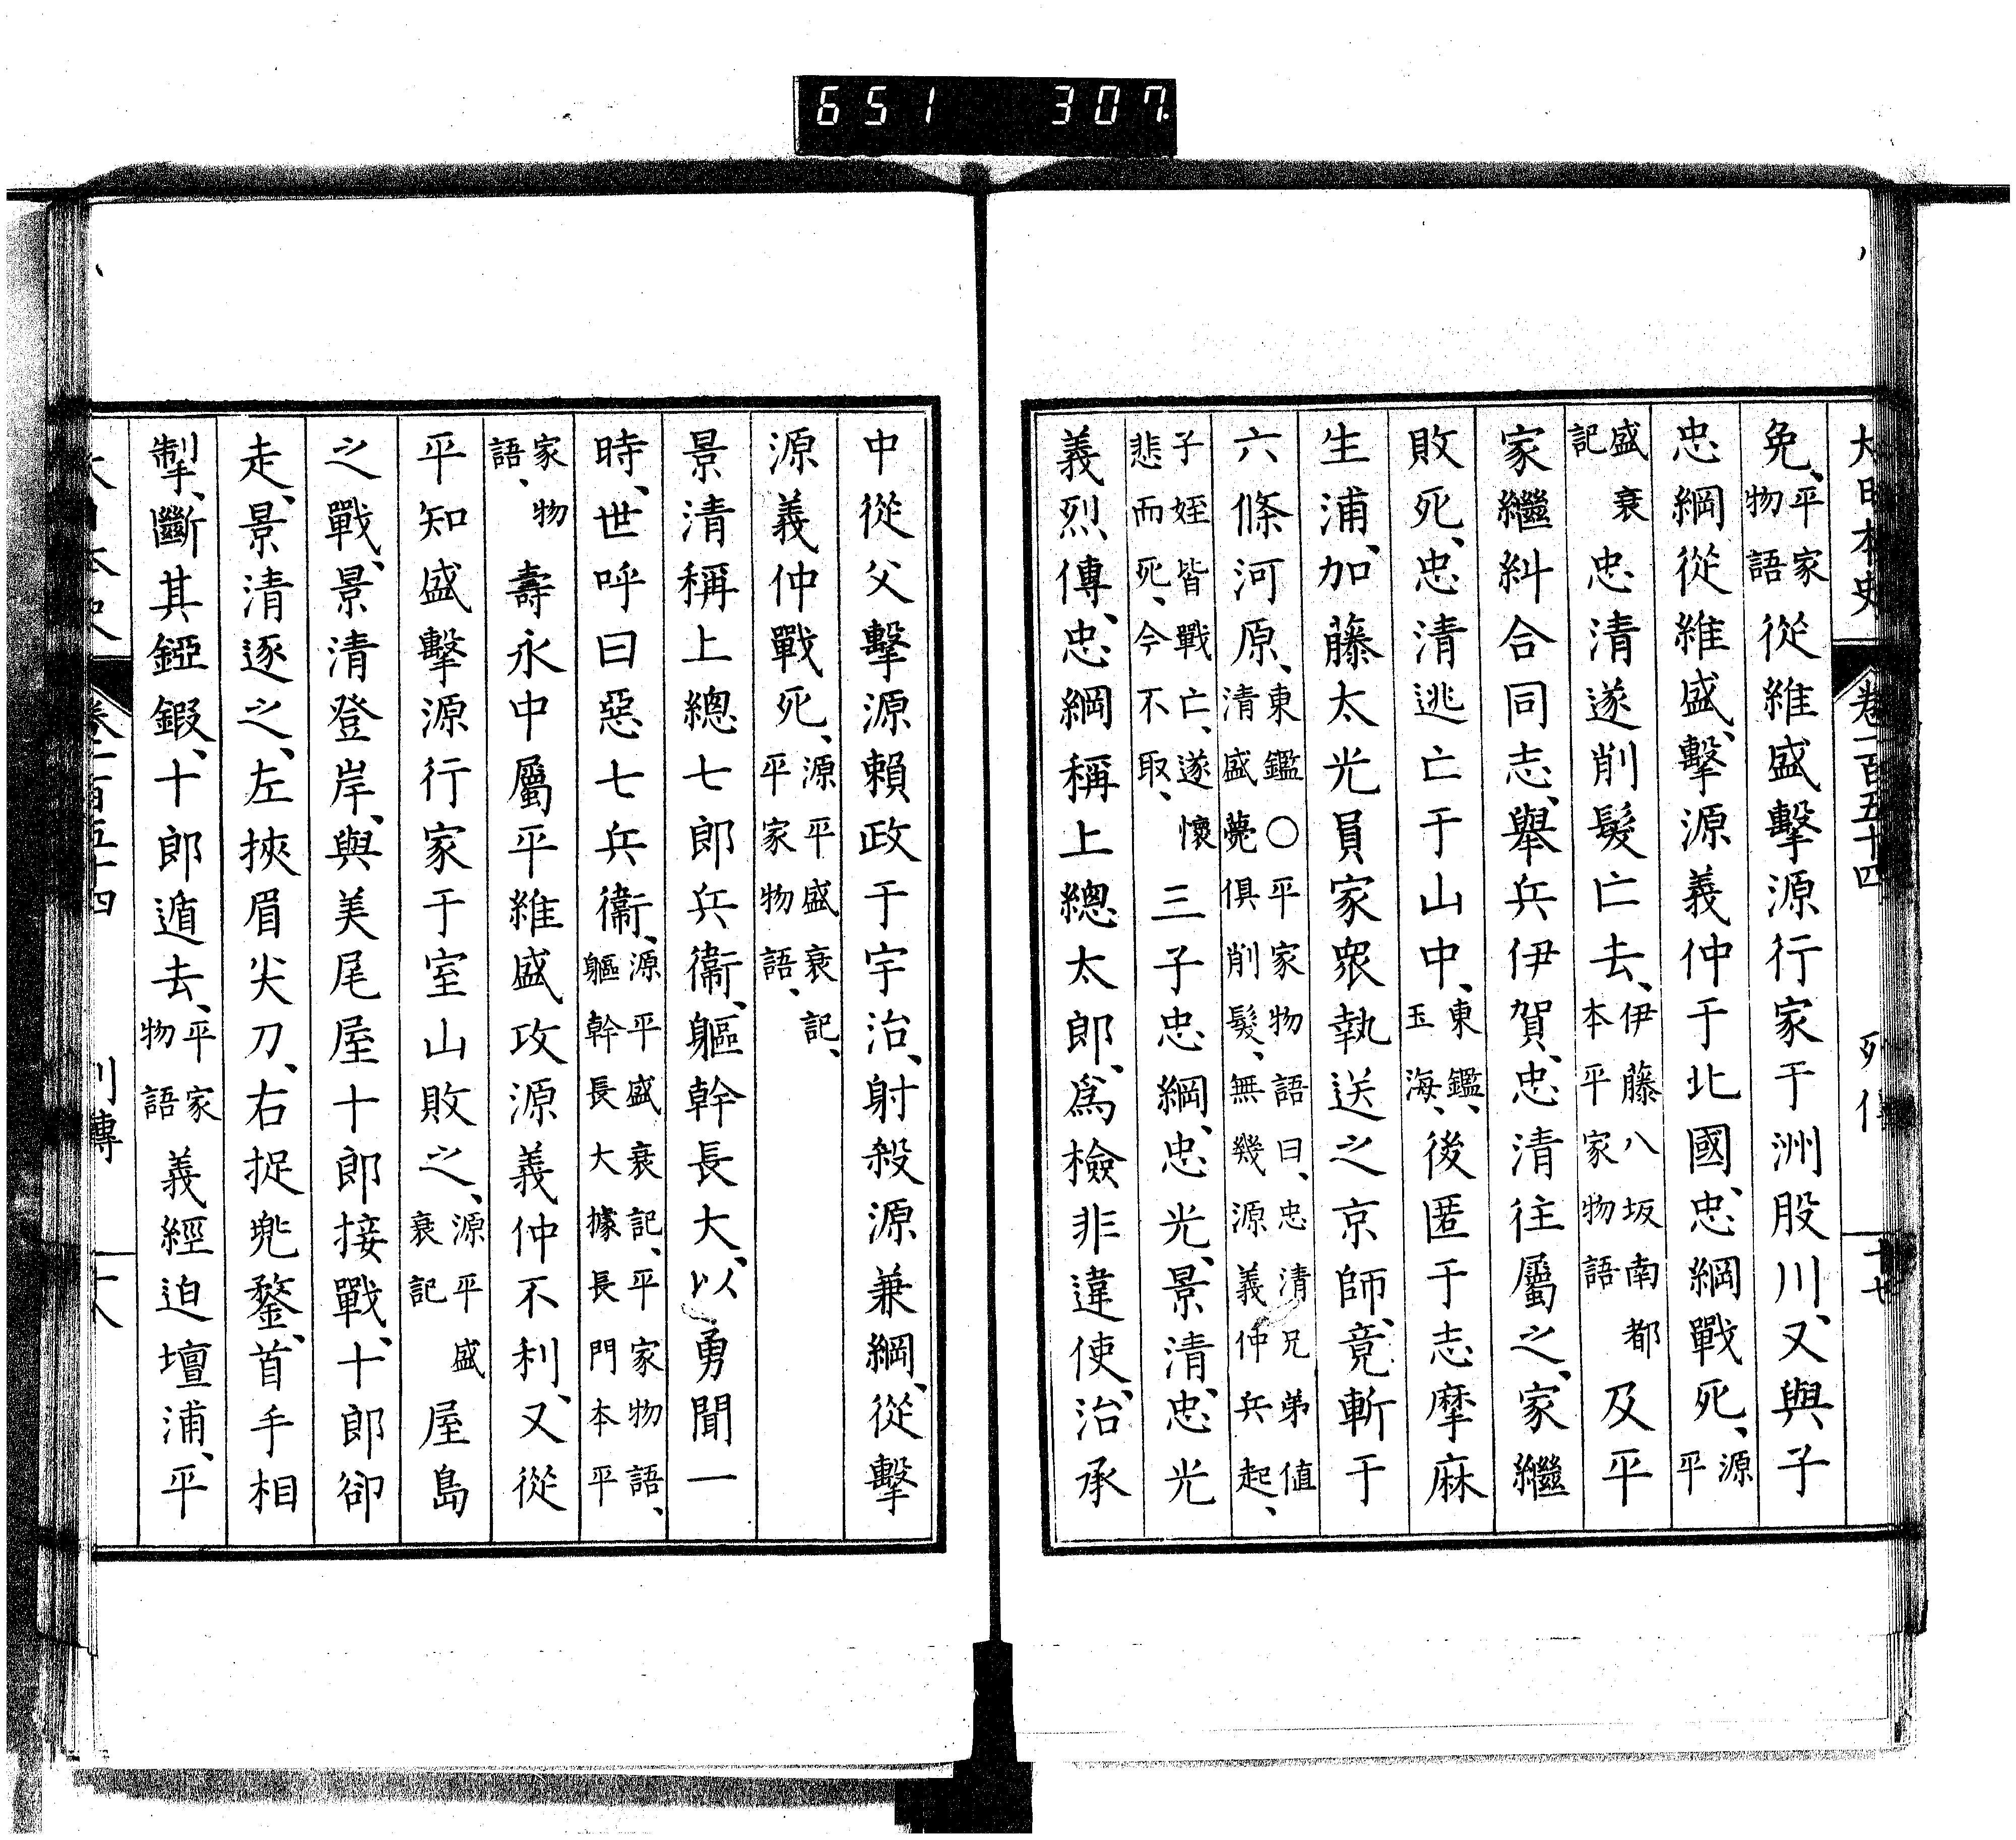 651 307
大日本史 卷一百五十四 列傳 十七
免、平家物語從維盛擊源行家于洲股川、又與子
忠綱從維盛、擊源義仲于北國、忠綱戰死、源平
盛衰記忠清遂削髮亡去、伊藤八坂南都本平家物語及平
家繼糾合同志、舉兵伊賀、忠清往屬之、家繼
敗死、忠清逃亡于山中、東鑑、玉海、後匿于志摩麻
生浦、加藤太光員家衆執送之京師、竟斬于
六條河原、東鑑○平家物語曰、忠清兄弟値清盛薨俱削髮、無幾源義仲兵起、
子姪皆戰亡、遂懷悲而死、今不取、三子忠綱、忠光、景清、忠光
義烈傳、忠綱稱上總太郎、爲檢非違使、治承
中從父擊源賴政于宇治、射殺源兼綱、從擊
源義仲戰死、源平盛衰記、平家物語、
景清稱上總七郎兵衞、軀幹長大、以勇聞一
時、世呼曰惡七兵衞、源平盛衰記、平家物語、軀幹長大據長門本平
家物語、壽永中屬平維盛攻源義仲不利、又從
平知盛擊源行家于室山敗之、源平盛衰記屋島
之戰、景清登岸、與美尾屋十郎接戰、十郎卻
走、景清逐之、左挾眉尖刀、右捉兜鍪、首手相
掣、斷其錏鍜、十郎遁去、平家物語義經迫壇浦、平
大日本史 卷一百五十四 列傳 十八